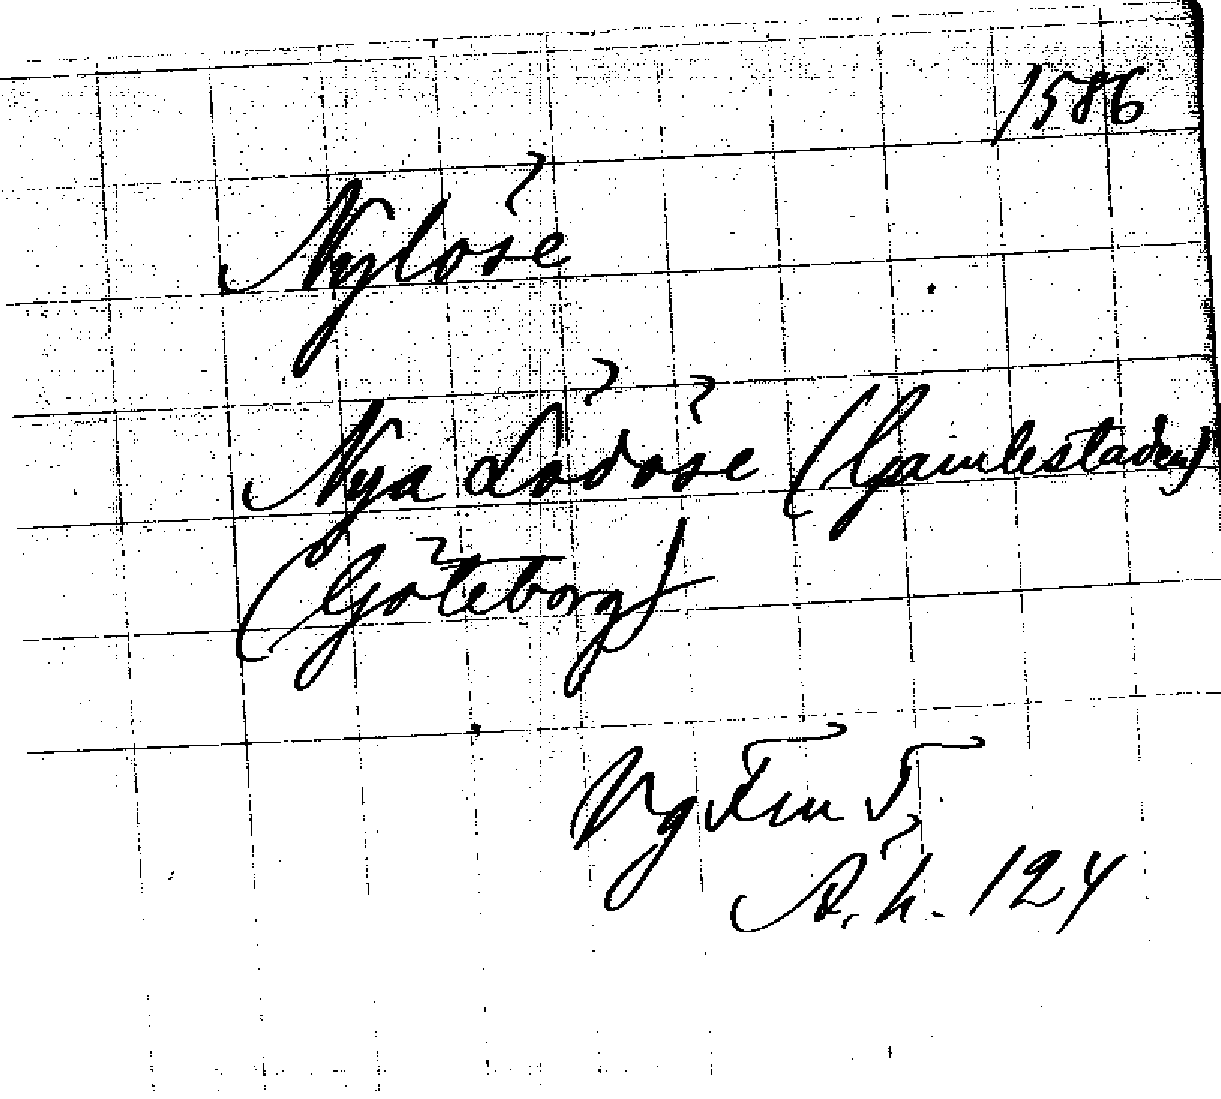 1586
Nylöse
Nya Lödöse (Gamlestaden)
(Göteborg)
Vg Fm 5
124